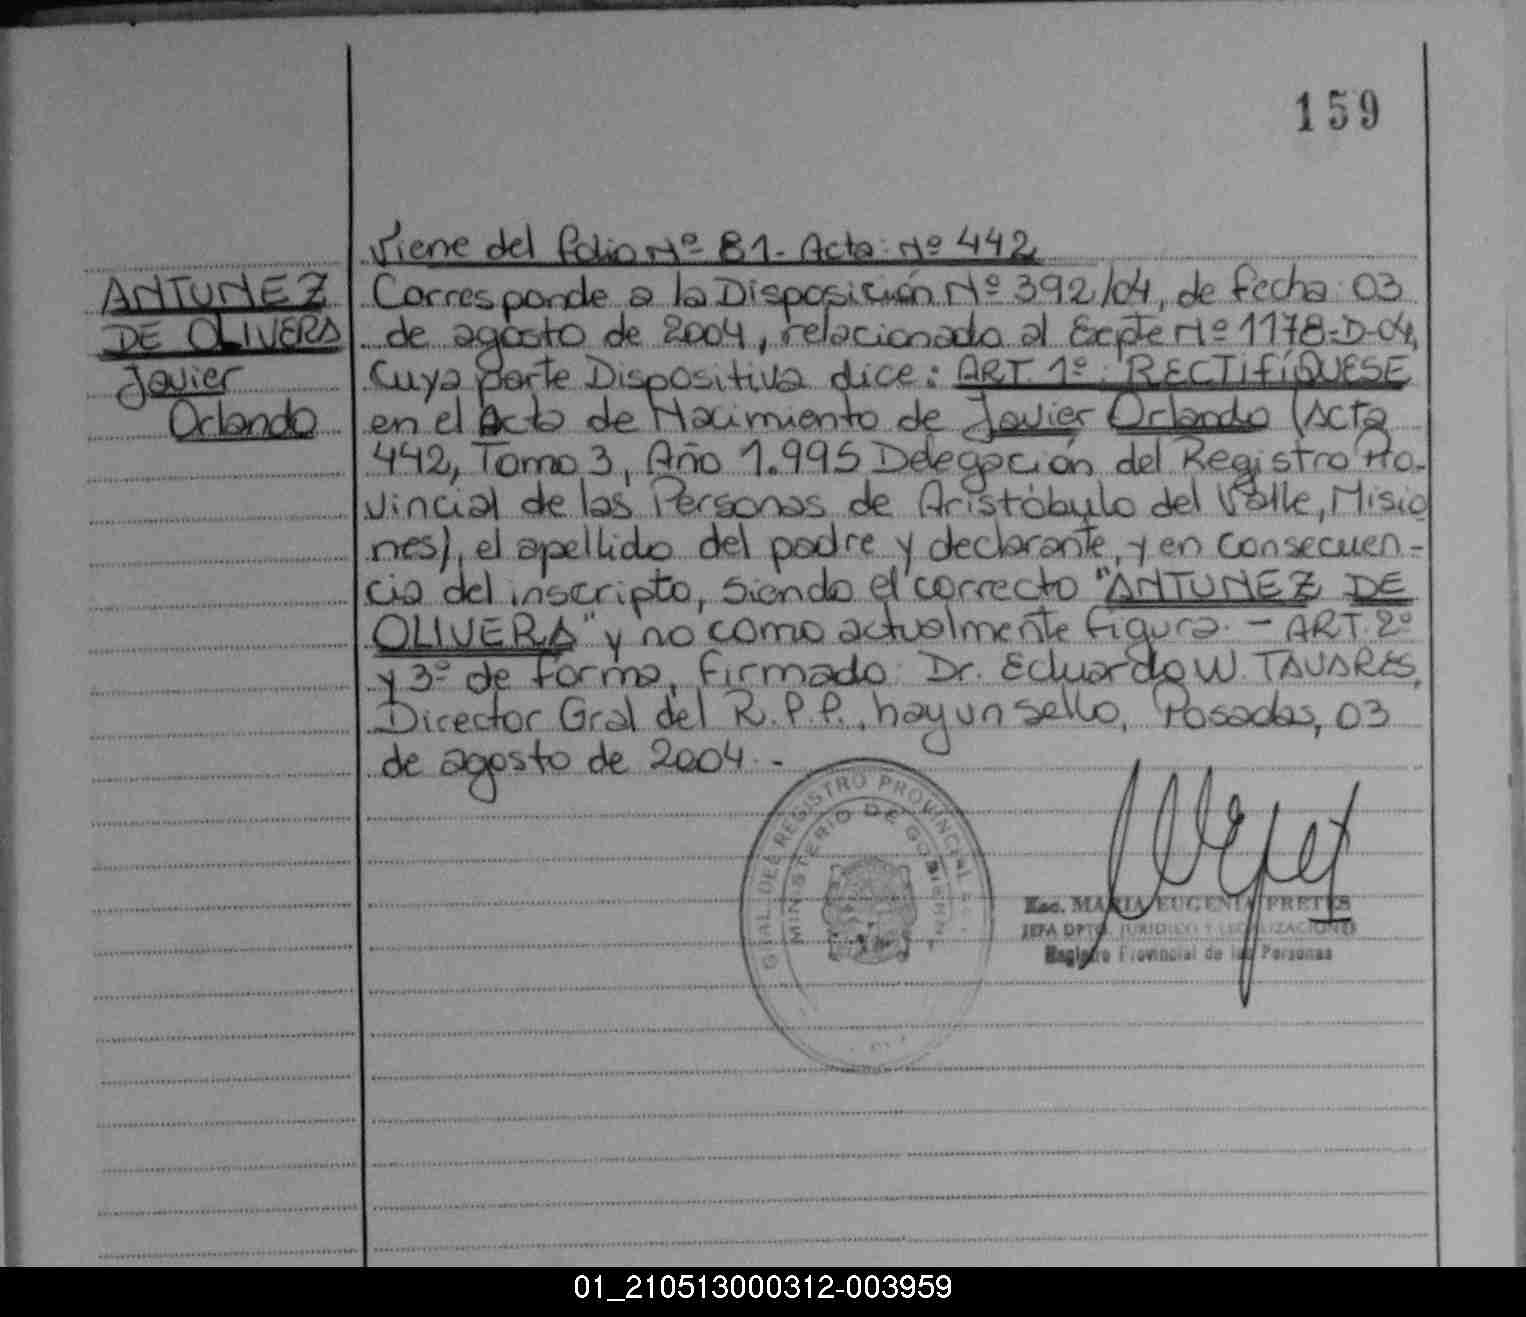 159
Viene del folio Nº 81- Acta: Nº 442
ANTUNEZ
DE OLIVERA
Javier
Orlando
Corresponde a la Disposición Nº 392/04, de fecha 03
de agosto de 2004, relacionada al Expte Nº 1178-D-04,
Cuya parte Dispositiva dice: ART. 1º: RECTIFÍQUESE
en el Acta de Nacimiento de Javier Orlando (Acta
442, Tomo 3, Año 1.995 Delegación del Registro Pro-
vincial de las Personas de Aristóbulo del Valle, Misio
nes), el apellido del padre y declarante, y en consecuen-
cia del inscripto, siendo el correcto "ANTUNEZ DE
OLIVERA" y no como actualmente figura. - ART. 2º
y 3º de forma, firmado: Dr. Eduardo W. TAVARES,
Director Gral del R.P.P., hay un sello, Posadas, 03
de agosto de 2004. -
GRAL. DEL REGISTRO PROVINCIAL
MINISTERIO DE GOBIERN
Esc. MARIA EUGENIA FRETES
JEFA DPTO. JURIDICO Y LEGALIZACIONES
Registro Provincial de las Personas
01_210513000312-003959